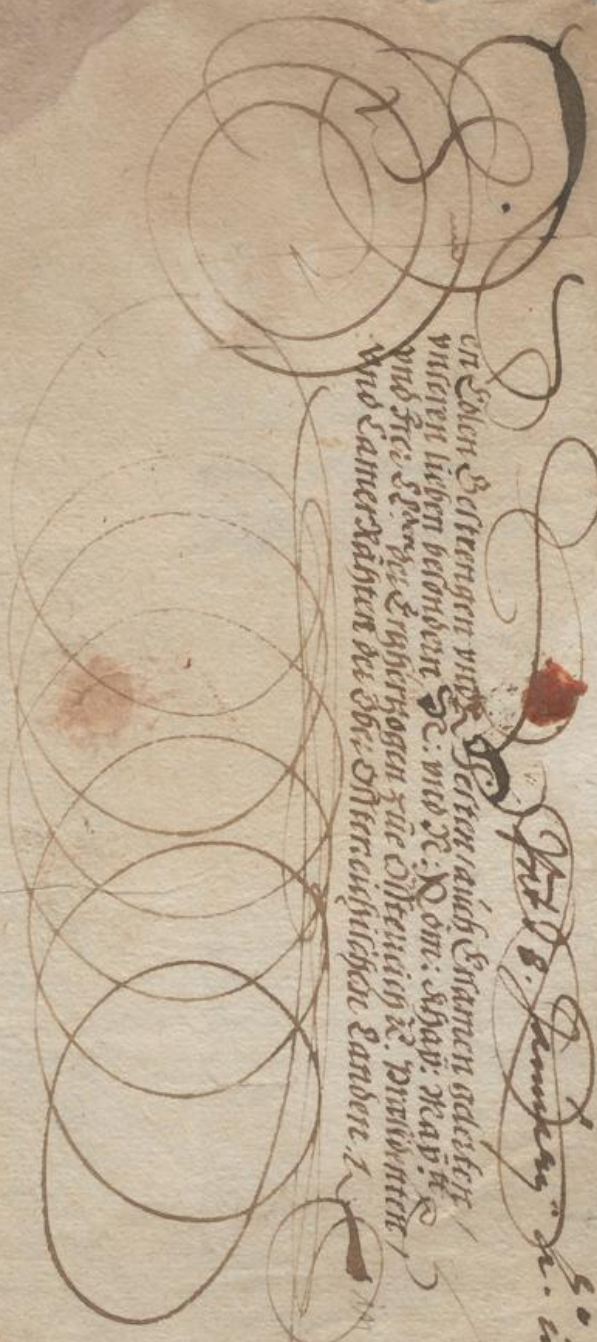 Pnt 18. Januarÿ
Den Edlen Gestrengen vnd Vesten / auch Ersamen gelerten /
vnseren lieben besondern N: vnd N: Röm: Khaÿ: Maÿ: tt
vnd Frl: Erzherzogen zue Össterreich tt. Præsidenten /
vnd Camer Räthen der Ober Össterreichischen Landen. /